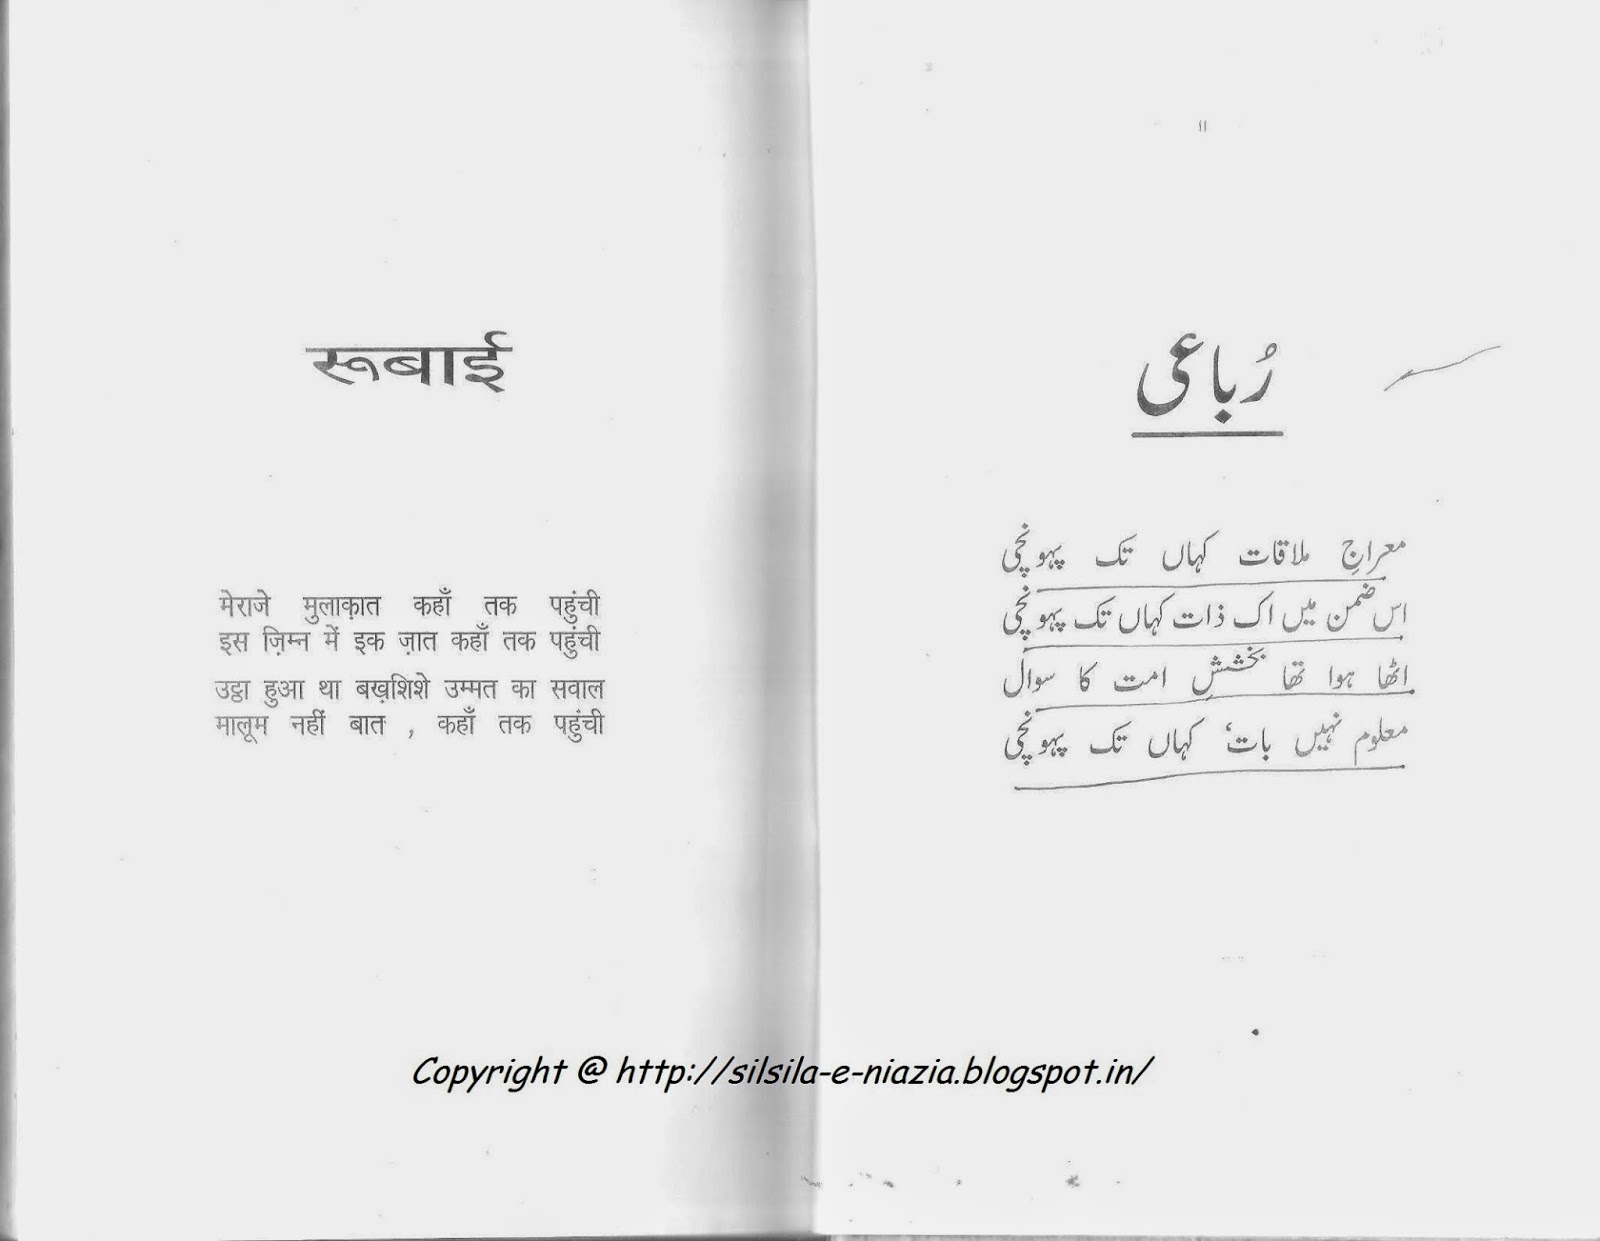 रूबाई
मेराजे मुलाक़ात कहाँ तक पहुंची
इस ज़िम्न में इक ज़ात कहाँ तक पहुंची
उट्ठा हुआ था बख़शिशे उम्मत का सवाल
मालूम नहीं बात , कहाँ तक पहुंची
اا
رُباعی
معراجِ ملاقات کہاں تک پہونچی
اس ضمن میں اک ذات کہاں تک پہونچی
اٹھا ہوا تھا بخششِ امت کا سوال
معلوم نہیں بات، کہاں تک پہونچی
Copyright @ http://silsila-e-niazia.blogspot.in/